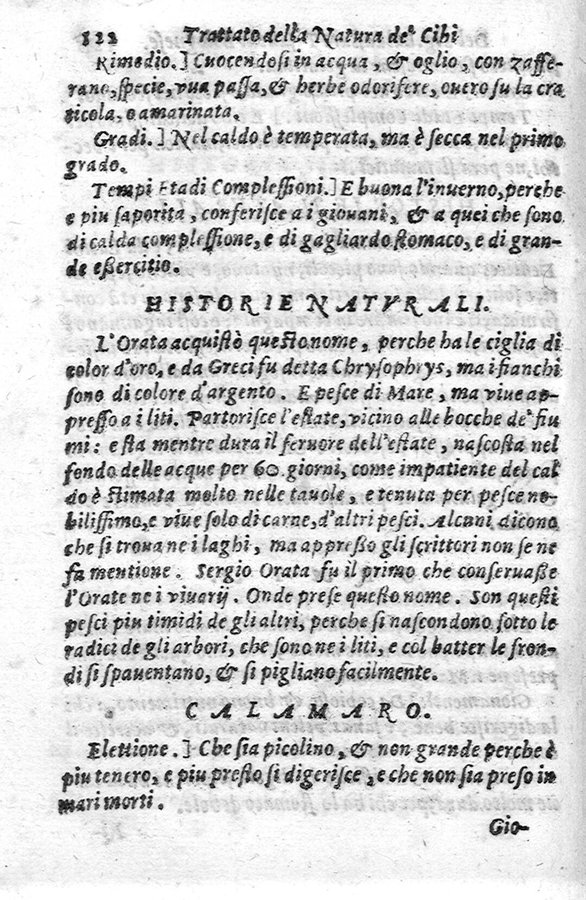 122 Trattato della Natura de' Cibi
Rimedio.] Cuocendosi in acqua, & oglio, con zaffe-
rano, specie, vua passa, & herbe odorifere, ouero su la cra
ticola, o amarinata.
Gradi.] Nel caldo è temperata, ma è secca nel primo
grado.
Tempi Etadi Complessioni.] E buona l'inuerno, perche
e piu saporita, conferisce a i giouani, & a quei che sono
di calda complessione, e di gagliardo stomaco, e di gran-
de essercitio.
HISTORIE NATVRALI.
L'Orata acquistò questo nome, perche ha le ciglia di
color d'oro, e da Greci fu detta Chrysophrys, ma i fianchi
sono di colore d'argento. E pesce di Mare, ma viue ap-
presso a i liti. Partorisce l'estate, vicino alle bocche de' fiu
mi: e sta mentre dura il feruore dell'estate, nascosta nel
fondo delle acque per 60 giorni, come impatiente del cal
do è stimata molto nelle tauole, e tenuta per pesce no-
bilissimo, e viue solo di carne, d'altri pesci. Alcuni dicono
che si troua ne i laghi, ma appresso gli scrittori non se ne
fa mentione. Sergio Orata fu il primo che conseruasse
l'Orate ne i viuarij. Onde prese questo nome. Son questi
pesci piu timidi de gli altri, perche si nascondono sotto le
radici de gli arbori, che sono ne i liti, e col batter le fron-
di si spauentano, & si pigliano facilmente.
CALAMARO.
Elettione.] Che sia picolino, & non grande perche è
piu tenero, e piu presto si digerisce, e che non sia preso in
mari morti.
Gio-